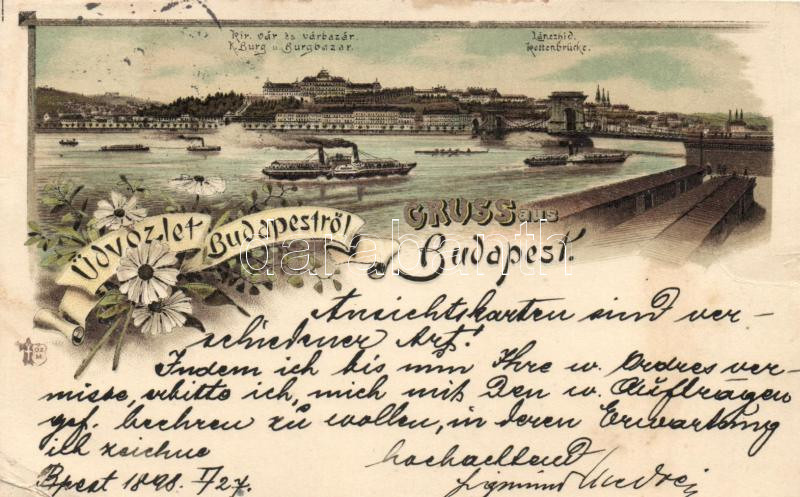 Kir. vár és várbazár.
K. Burg u. Burgbazar.
Lánczhid.
Kettenbrücke.
Üdvözlet Budapestről
GRUSS aus
Budapest.
darabanth
Ansichtskarten sind ver-
schiedener Art!
Indem ich bis nun Ihre w. Ordres ver-
misse, erbitte ich, mich mit Den w. Aufträgen
gef. beehren zu wollen, in deren Erwartung
ich zeichne
hochachtend
Bpest 1898. I/27.
Sigmund